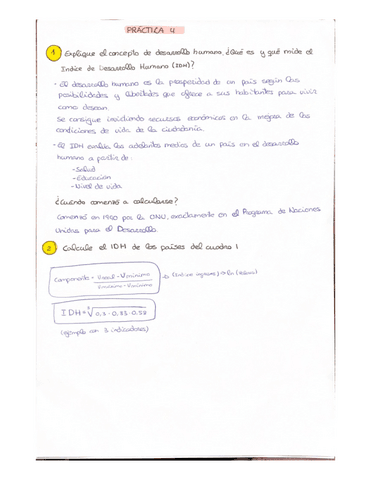 PRÁCTICA 4
1 Explique el concepto de desarrollo humano, ¿Qué es y qué mide el
Indice de Desarrollo Humano (IDH)?
· El desarrollo humano es la prosperidad de un país según las
posibilidades y libertades que ofrece a sus habitantes para vivir
como desean.
Se consigue invirtiendo recursos económicos en la mejora de las
condiciones de vida de la ciudadanía.
· El IDH evalúa los adelantos medios de un país en el desarrollo
humano a partir de:
- Salud
- Educación
- Nivel de vida
¿Cuándo comenzó a calcularse?
Comenzó en 1990 por la ONU, exactamente en el Programa de Naciones
Unidas para el Desarrollo.
2 Calcule el IDH de los países del cuadro 1
Componente = Vreal - Vmínimo
Vmáximo - Vmínimo
IDH = ∛0,9 · 0,83 · 0,88
(ejemplo con 3 indicadores)